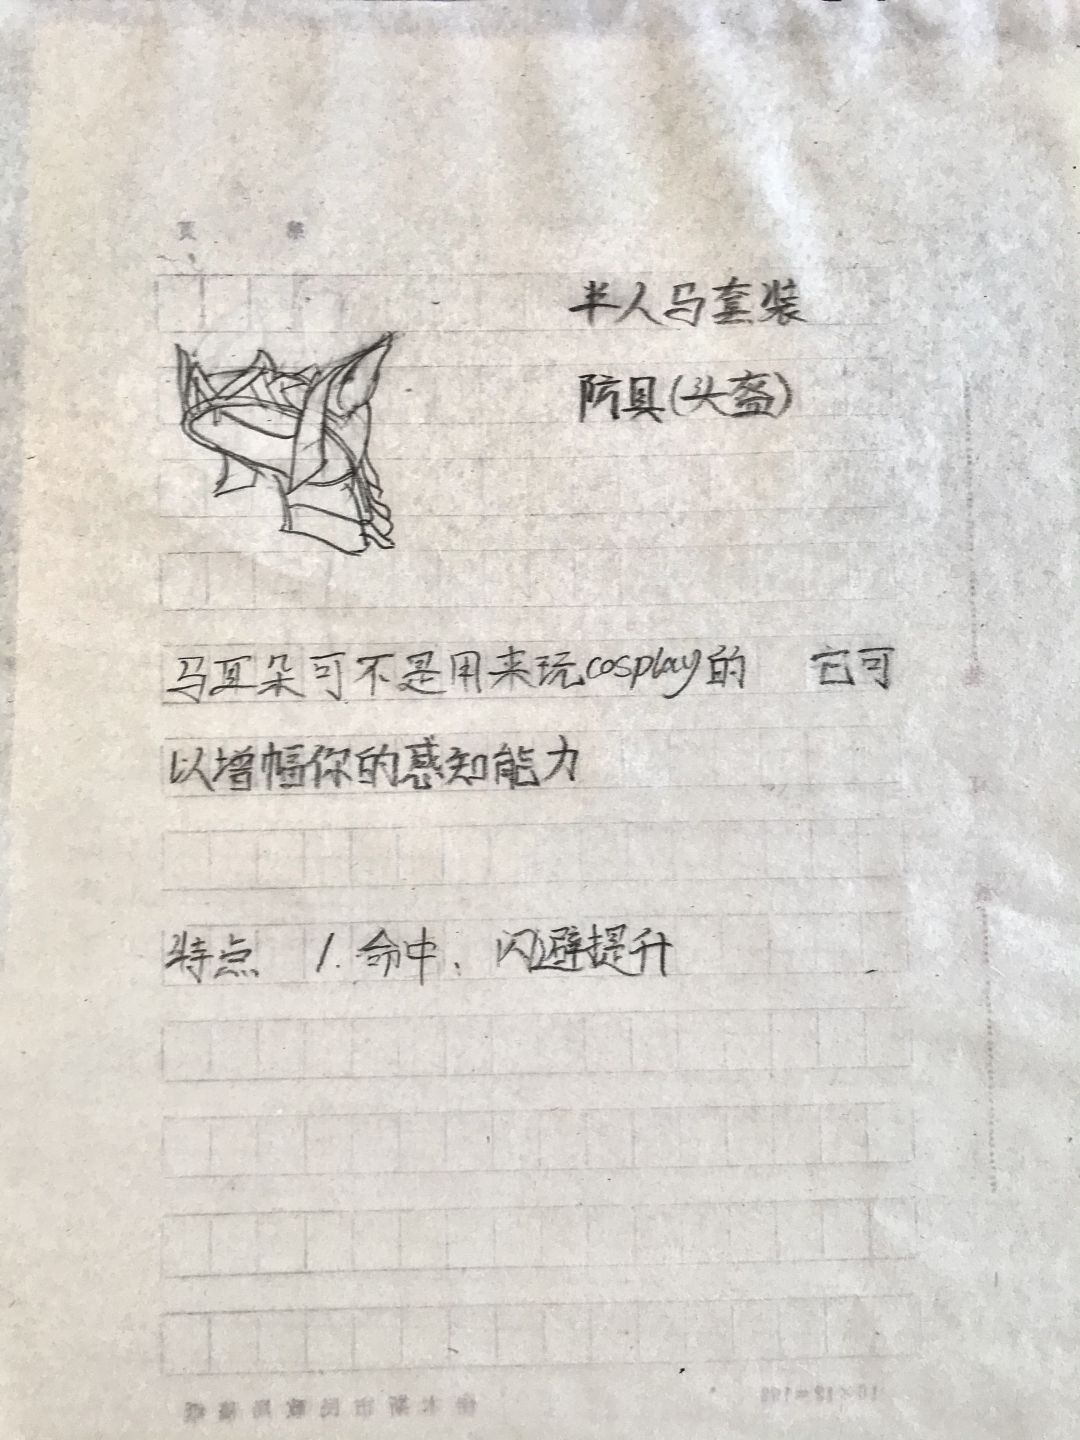 页 第
半人马套装
防具(头盔)
马耳朵可不是用来玩cosplay的 它可
以增幅你的感知能力
特点 1.命中、闪避提升